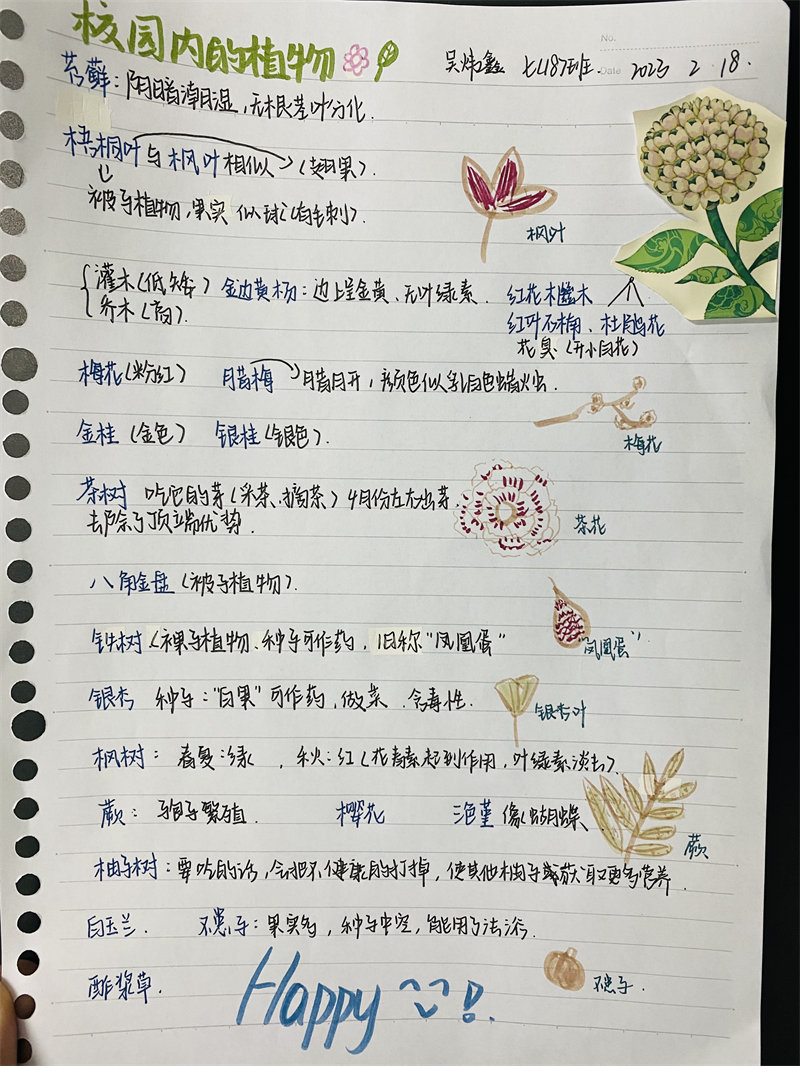 校园内的植物
No.
吴炜鑫 七187班. Date 2023 2 18.
苔藓：阴暗潮湿，无根茎叶分化.
梧桐叶与枫叶相似（翅果）.
被子植物，果实 似球（有毛刺）.
枫叶
灌木（低矮） 金边黄杨：边上呈金黄、无叶绿素. 红花檵木
乔木（高）. 红叶石楠、杜鹃花
花臭（开小白花）
梅花（粉红） 腊梅 腊月开，颜色似乳白色蜡火虫.
金桂（金色） 银桂（银色）. 梅花
茶树 吃它的芽（采茶、摘茶）4月份左右出芽.
去除了顶端优势. 茶花
八角金盘（被子植物）.
铁树（裸子植物、种子可作药，旧称“凤凰蛋”
“凤凰蛋”
银杏 种子：“白果”可作药，做菜.含毒性.
银杏叶
枫树：春夏：绿，秋：红（花青素起到作用，叶绿素淡去）.
蕨：孢子繁殖. 樱花 三色堇 像蝴蝶
蕨
柚子树：要吃的话，会把不健康的打掉，使其他柚子或获取更多营养.
白玉兰. 无患子：果实多，种子中空，能用于洗涤.
酢浆草.
Happy !.
无患子.